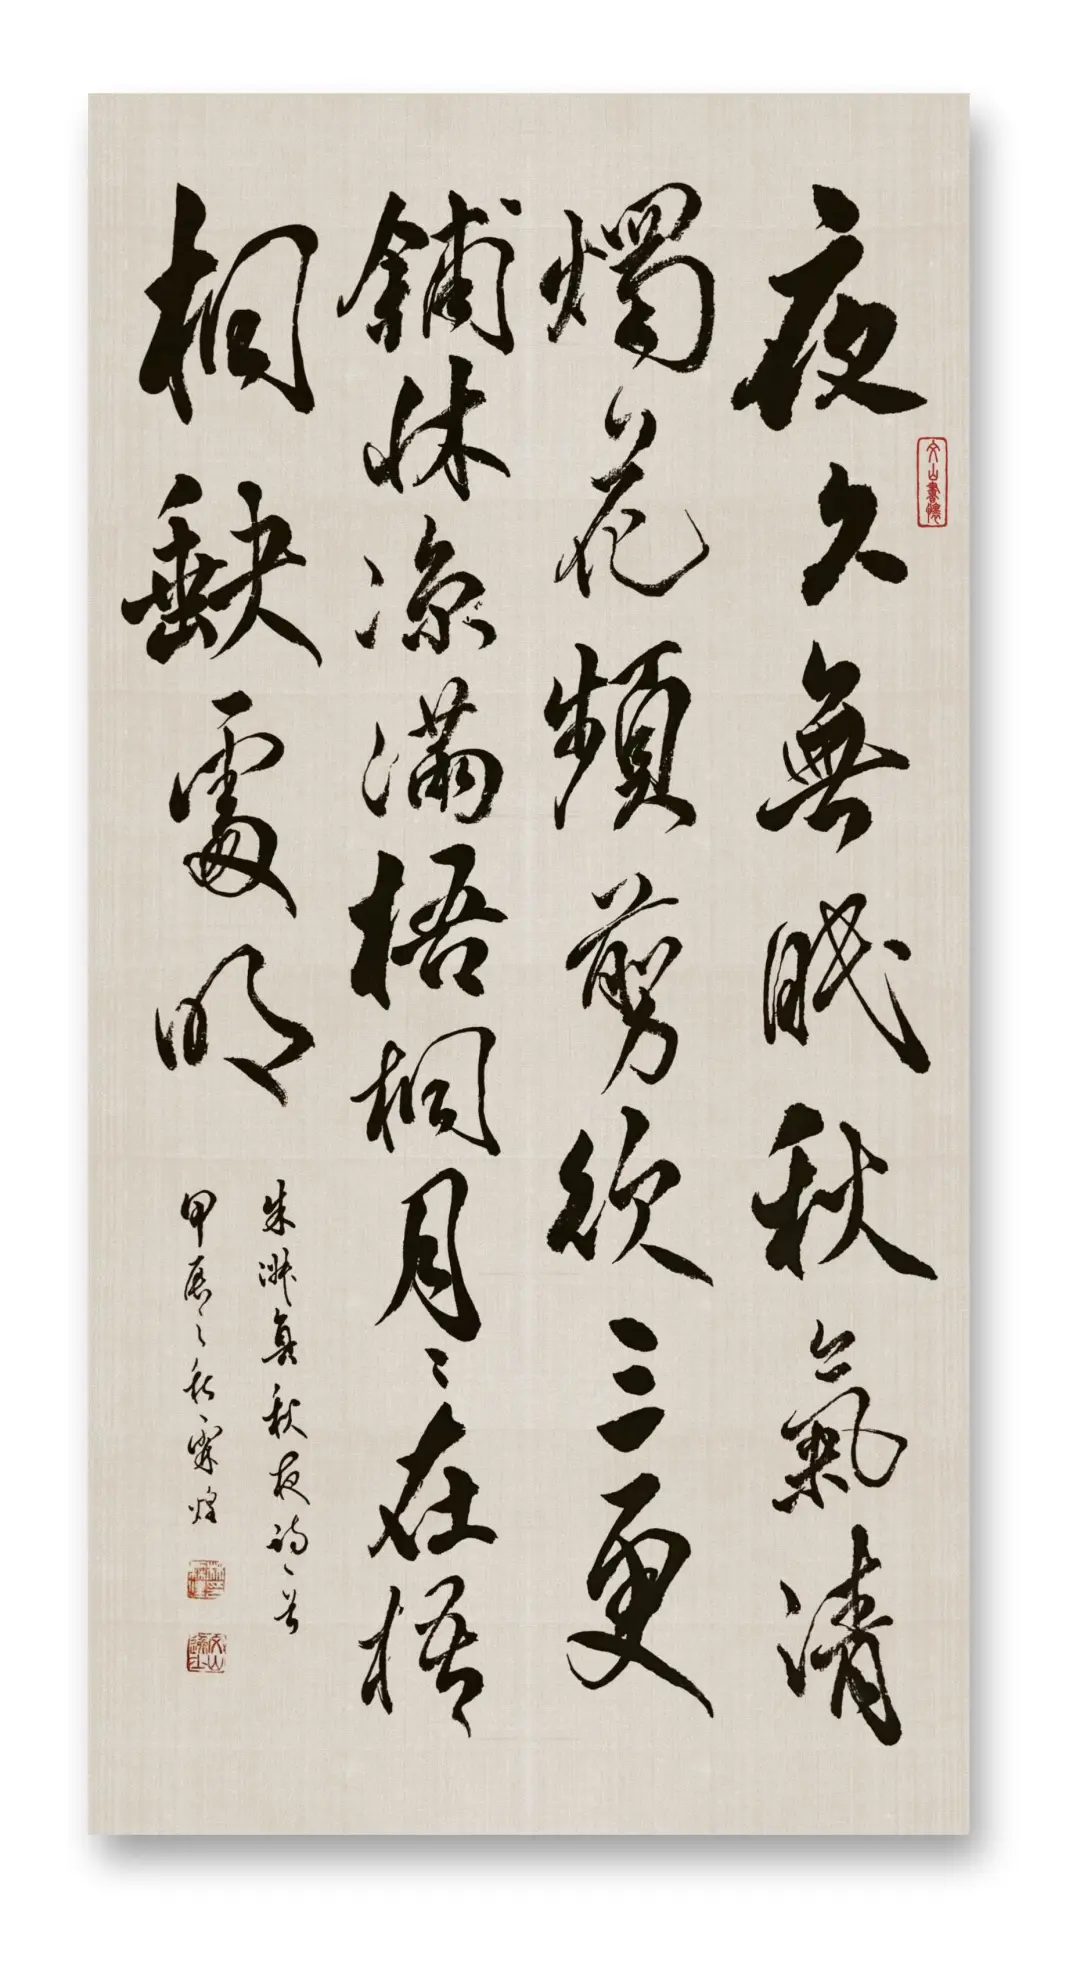 夜久無眠秋氣清
燭花頻剪欲三更
鋪牀凉滿梧桐月〻在梧
桐缺處明
朱淑真秋夜詩一首
甲辰之秋霖煌
文山書懷